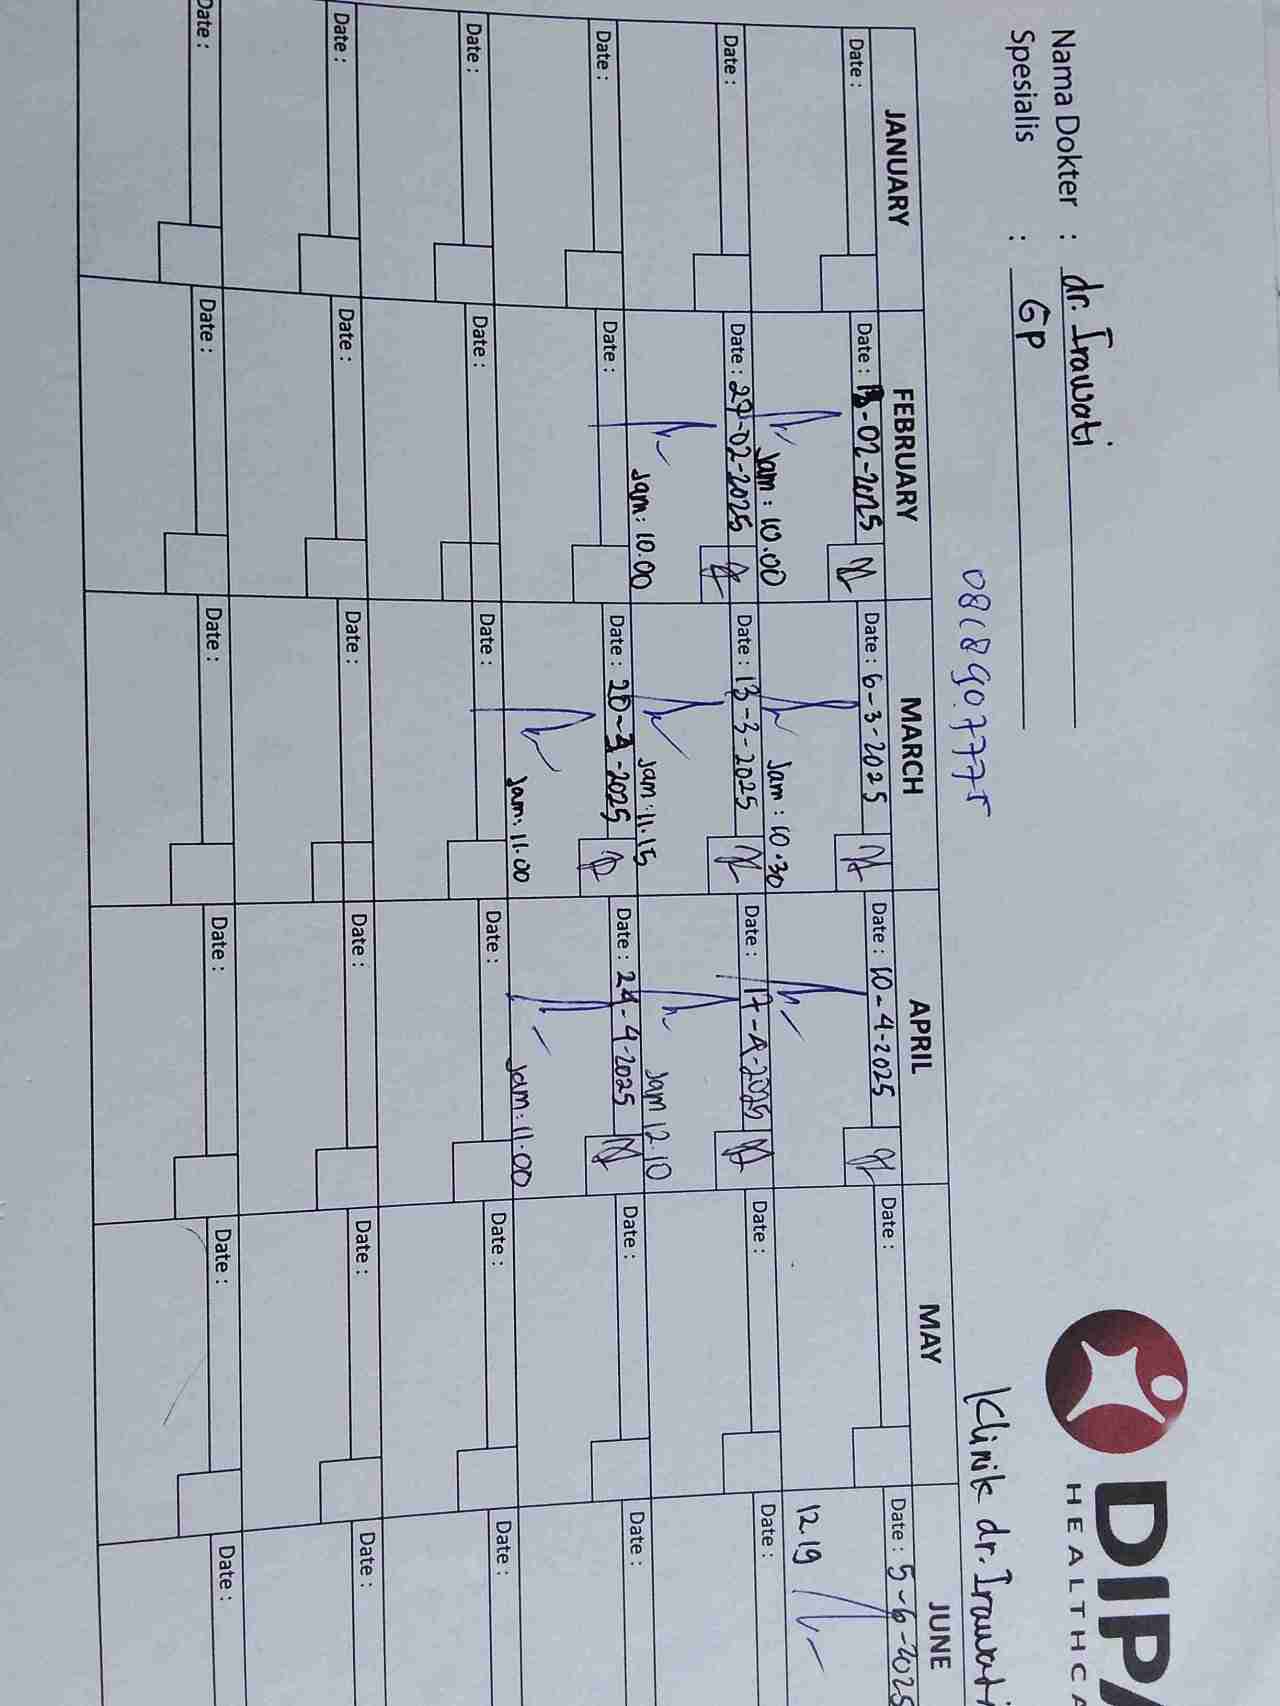 DIPA
HEALTHCA
Nama Dokter : dr. Irawati
Spesialis : GP
Klinik dr. Irawati
JANUARY FEBRUARY MARCH APRIL MAY JUNE
Date : Date : 13-02-2025 Date : 6-3-2025 Date : 10-4-2025 Date : Date : 5-6-2025
Jam : 10.00 Jam : 10.30 12.19
Date : Date : 27-02-2025 Date : 13-3-2025 Date : 17-4-2025 Date : Date :
Jam : 10.00 Jam : 11.15 Jam 12.10
Date : Date : Date : 20-3-2025 Date : 24-4-2025 Date : Date :
Jam : 11.00 Jam : 11.00
Date : Date : Date : Date : Date : Date :
Date : Date : Date : Date : Date : Date :
Date : Date : Date : Date : Date : Date :